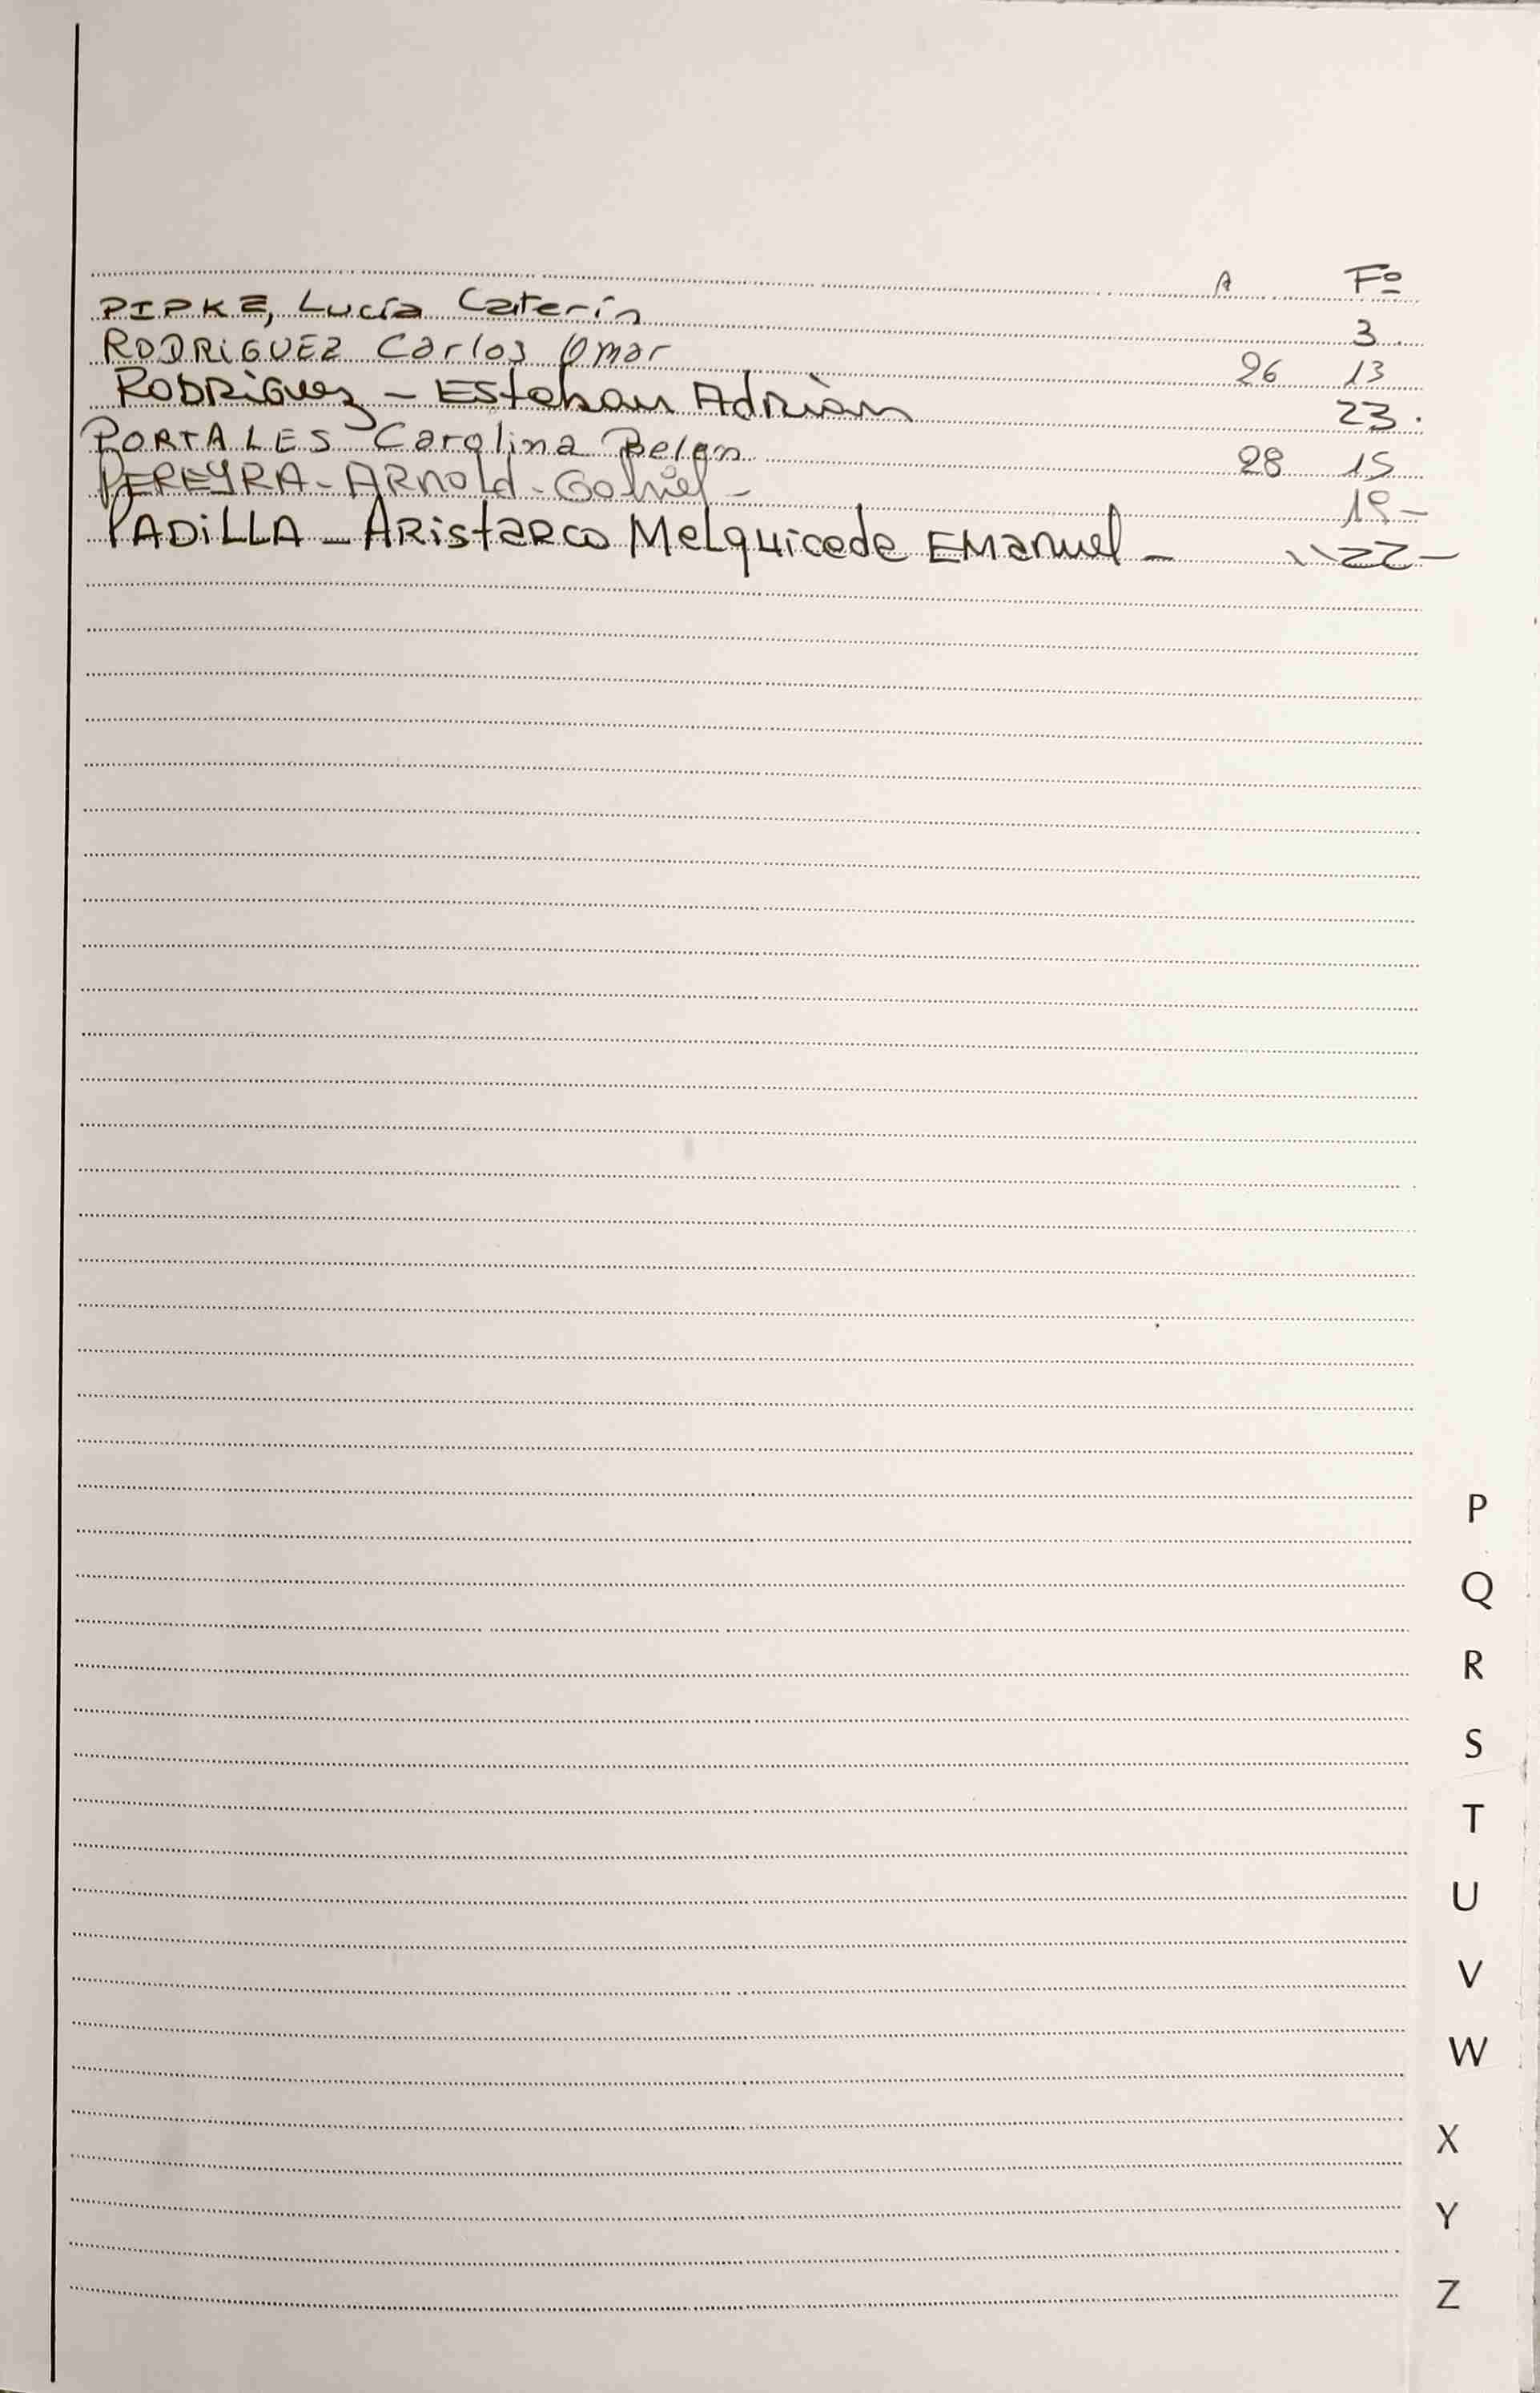 A Fº
PIPKE, Lucía Caterin 3
RODRIGUEZ Carlos Omar 26 13
RODRiGuez - ESteban Adriàn 23.
PORTALES Carolina Belen 28 15
PEREYRA - ARnold - Gabriel -
PADiLLA - ARistaRco MeLquicede EManuel - \\ 22 -
P
Q
R
S
T
U
V
W
X
Y
Z